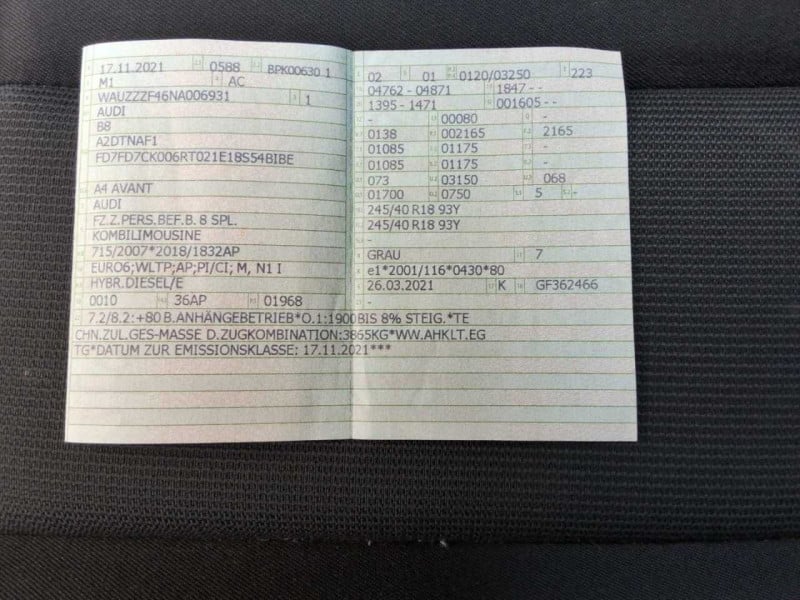 17.11.2021 0588 BPK00630 1
M1 AC
WAUZZZF46NA006931 1
AUDI
B8
A2DTNAF1
FD7FD7CK006RT021E18S54BIBE
A4 AVANT
AUDI
FZ.Z.PERS.BEF.B. 8 SPL.
KOMBILIMOUSINE
715/2007*2018/1832AP
EURO6;WLTP;AP;PI/CI; M, N1 I
HYBR.DIESEL/E
0010 36AP 01968
02 01 0120/03250 223
04762 - 04871 1847 - -
1395 - 1471 001605 - -
- 00080 -
0138 002165 2165
01085 01175 -
01085 01175 -
073 03150 068
01700 0750 5 -
245/40 R18 93Y
245/40 R18 93Y
-
GRAU 7
e1*2001/116*0430*80
26.03.2021 K GF362466
-
7.2/8.2:+80 B.ANHÄNGEBETRIEB*O.1:1900BIS 8% STEIG.*TE
CHN.ZUL.GES-MASSE D.ZUGKOMBINATION:3865KG*WW.AHKLT.EG
TG*DATUM ZUR EMISSIONSKLASSE: 17.11.2021***